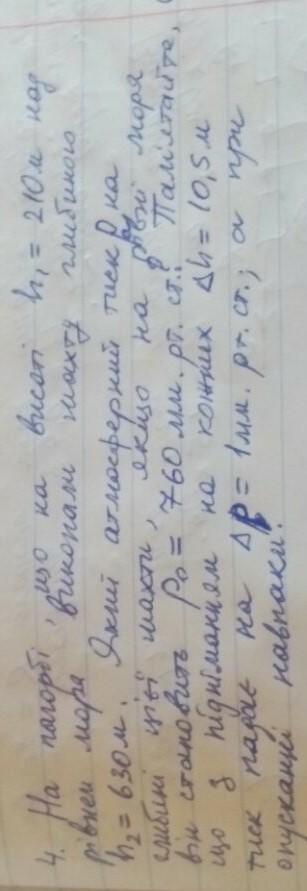 4. На пагорбі, що на висоті h₁ = 210 м над
рівнем моря викопали шахту глибиною
h₂ = 630 м. Який атмосферний тиск p на
глибині цієї шахти, якщо на рівні моря
він становить p₀ = 760 мм. рт. ст.? Пам'ятайте,
що з підніманням на кожних Δh = 10,5 м
тиск падає на Δp = 1 мм. рт. ст.; а при
опусканні навпаки.